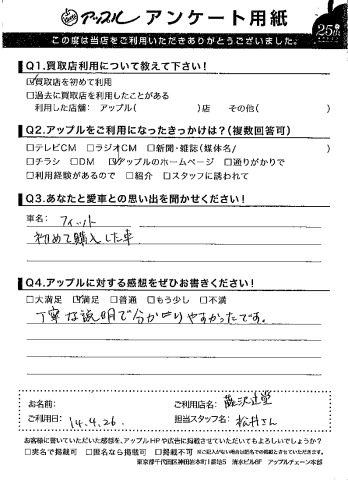 アップル アンケート用紙
25th
この度は当店をご利用いただきありがとうございました。
Q1.買取店利用について教えて下さい!
☑買取店を初めて利用
□過去に買取店を利用したことがある
利用した店舗: アップル( )店 その他( )
Q2.アップルをご利用になったきっかけは?(複数回答可)
□テレビCM □ラジオCM □新聞・雑誌(媒体名/ )
□チラシ □DM ☑アップルのホームページ □通りがかりで
□利用経験があるので □紹介 □スタッフに誘われて
Q3.あなたと愛車との思い出を聞かせください!
車名: フィット
初めて購入した車
Q4.アップルに対する感想をぜひお書きください!
□大満足 ☑満足 □普通 □もう少し □不満
丁寧な説明で分かりやすかったです。
お名前: ご利用店名: 藤沢辻堂
ご利用日: 14.4.26. 担当スタッフ名: 松井さん
お客様に書いていただいた感想を、アップルHPや広告に掲載させていただいてもよろしいでしょうか?
□実名で掲載可 □匿名なら掲載可 □掲載不可 ※ご記入がない場合は匿名での掲載とさせていただきます。
東京都千代田区神田岩本町1番地5 清水ビル8F アップルチェーン本部